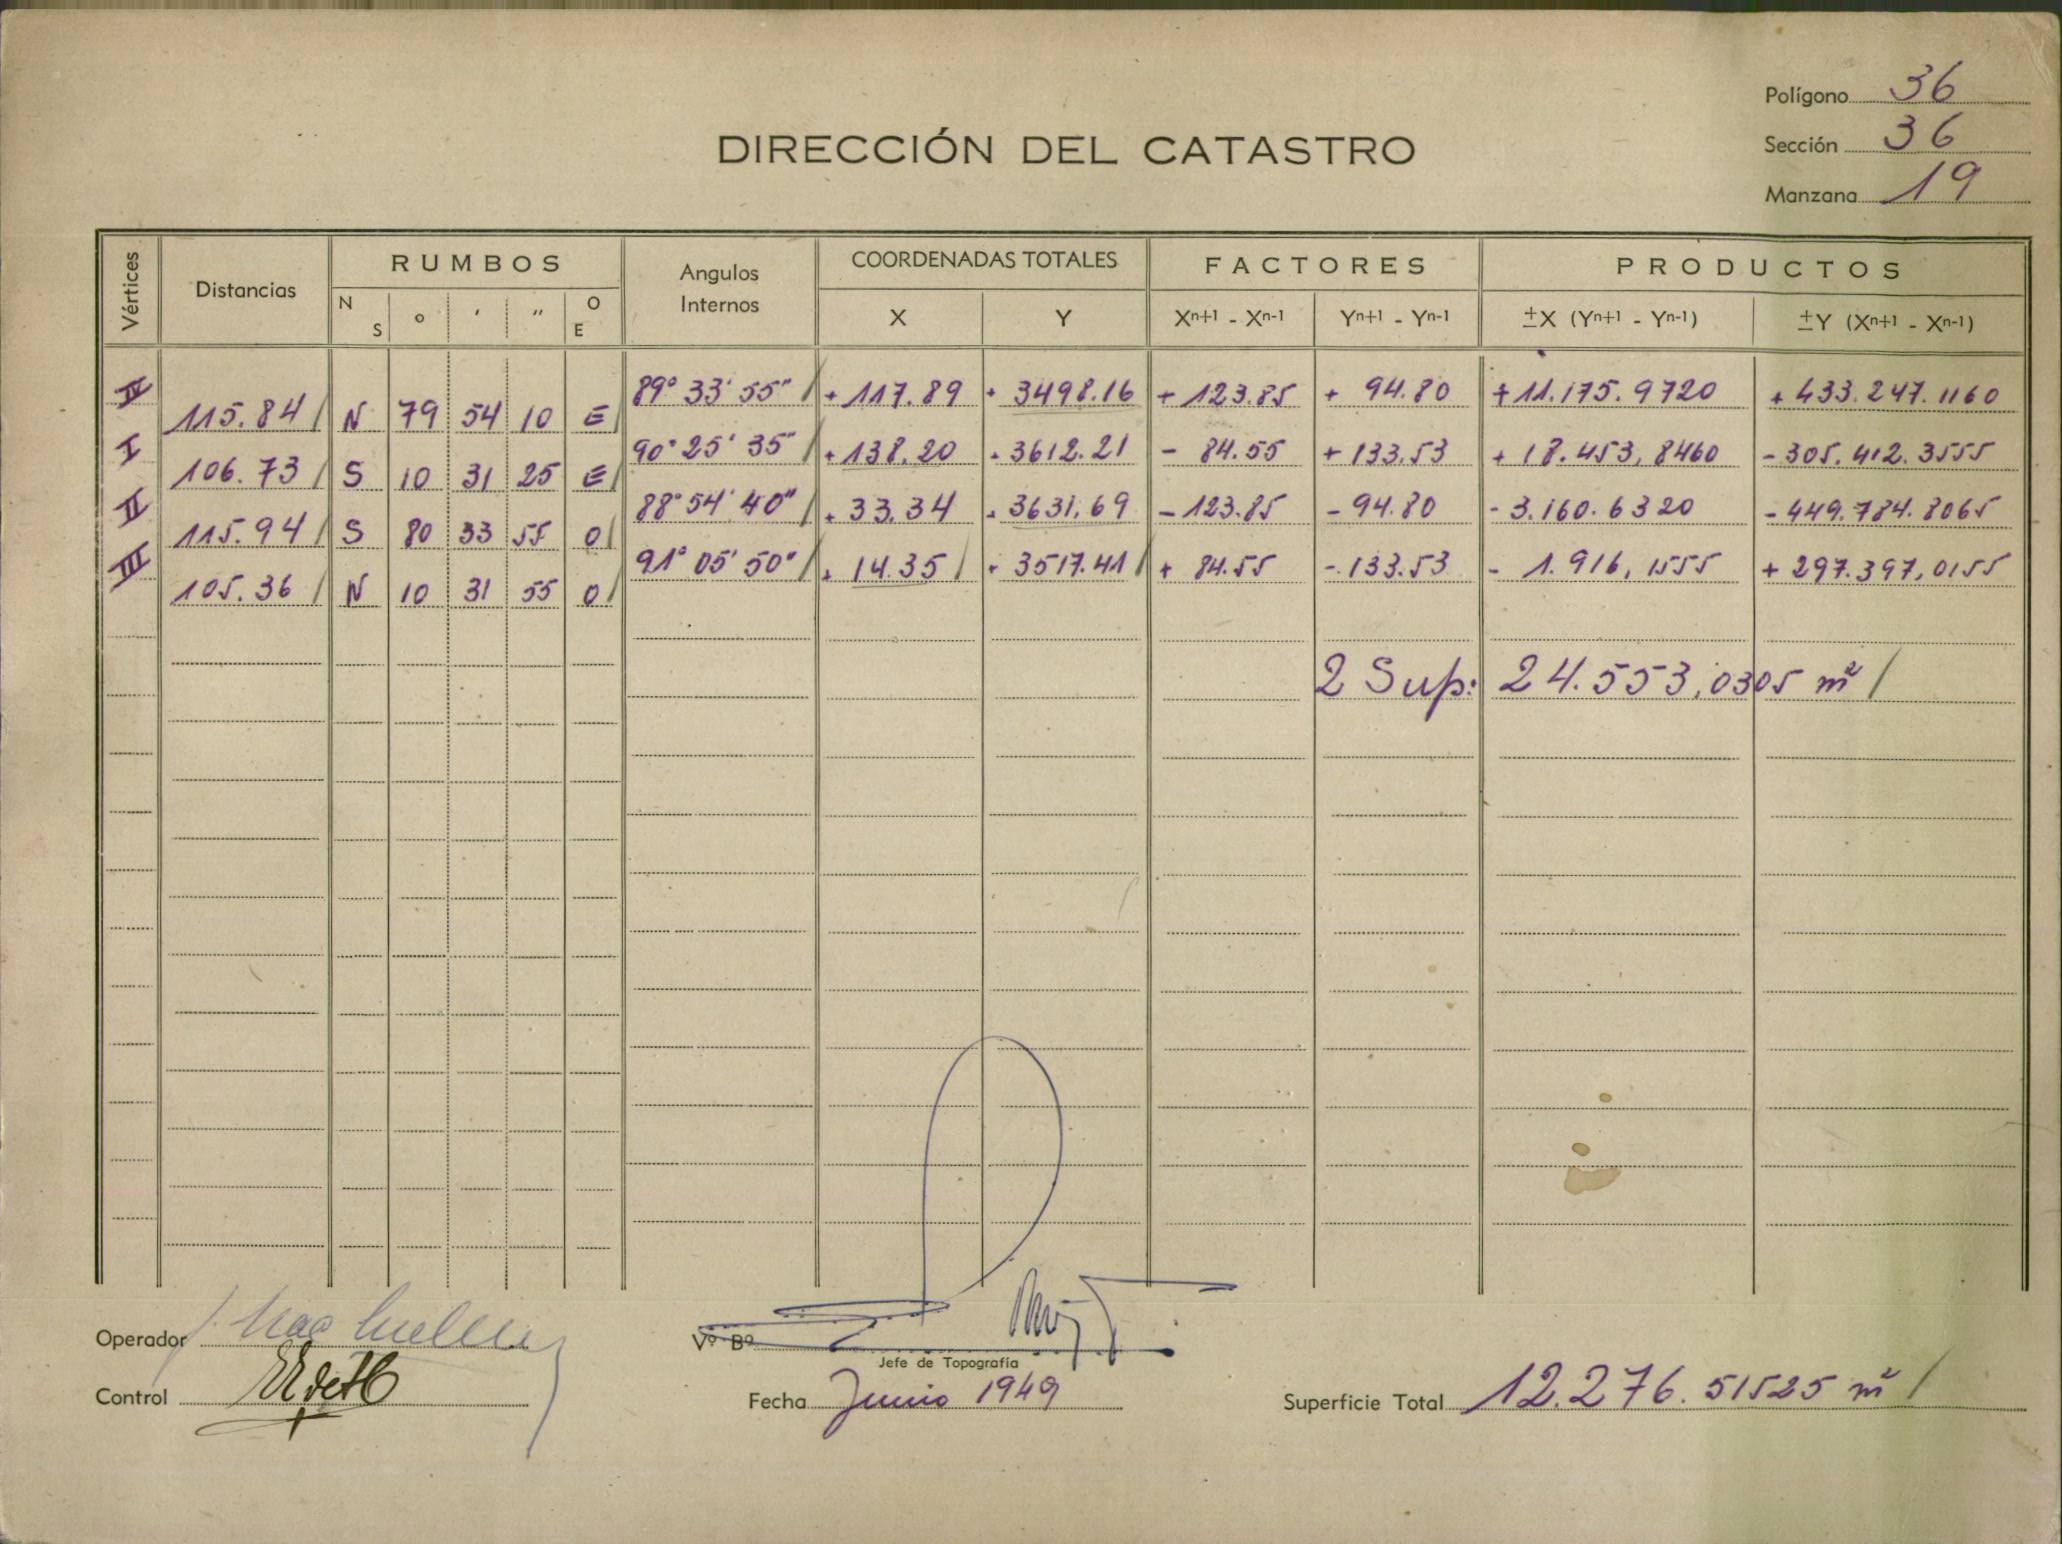 Polígono 36
DIRECCIÓN DEL CATASTRO
Sección 36
Manzana 19
Vértices Distancias RUMBOS Angulos Internos COORDENADAS TOTALES FACTORES PRODUCTOS
N S ° ' " O E X Y Xn+1 - Xn-1 Yn+1 - Yn-1 ±X (Yn+1 - Yn-1) ±Y (Xn+1 - Xn-1)
IV 89° 33' 55" / + 117.89 + 3498.16 + 123.85 + 94.80 + 11.175.9720 + 433.247.1160
115.84 / N 79 54 10 E /
I 90° 25' 35" / + 138.20 + 3612.21 - 84.55 + 133.53 + 18.453,8460 - 305.412.3555
106.73 / S 10 31 25 E /
II 88° 54' 40" / + 33.34 + 3631.69 - 123.85 - 94.80 - 3.160.6320 - 449.784.8065
115.94 / S 80 33 55 O /
III 91° 05' 50" / + 14.35 / + 3517.41 / + 84.55 - 133.53 - 1.916,1555 + 297.397,0155
105.36 / N 10 31 55 O /
2 Sup: 24.553,0305 m² /
Operador
Vº Bº
Jefe de Topografía
Control
Fecha Junio 1949
Superficie Total 12.276.51525 m² /